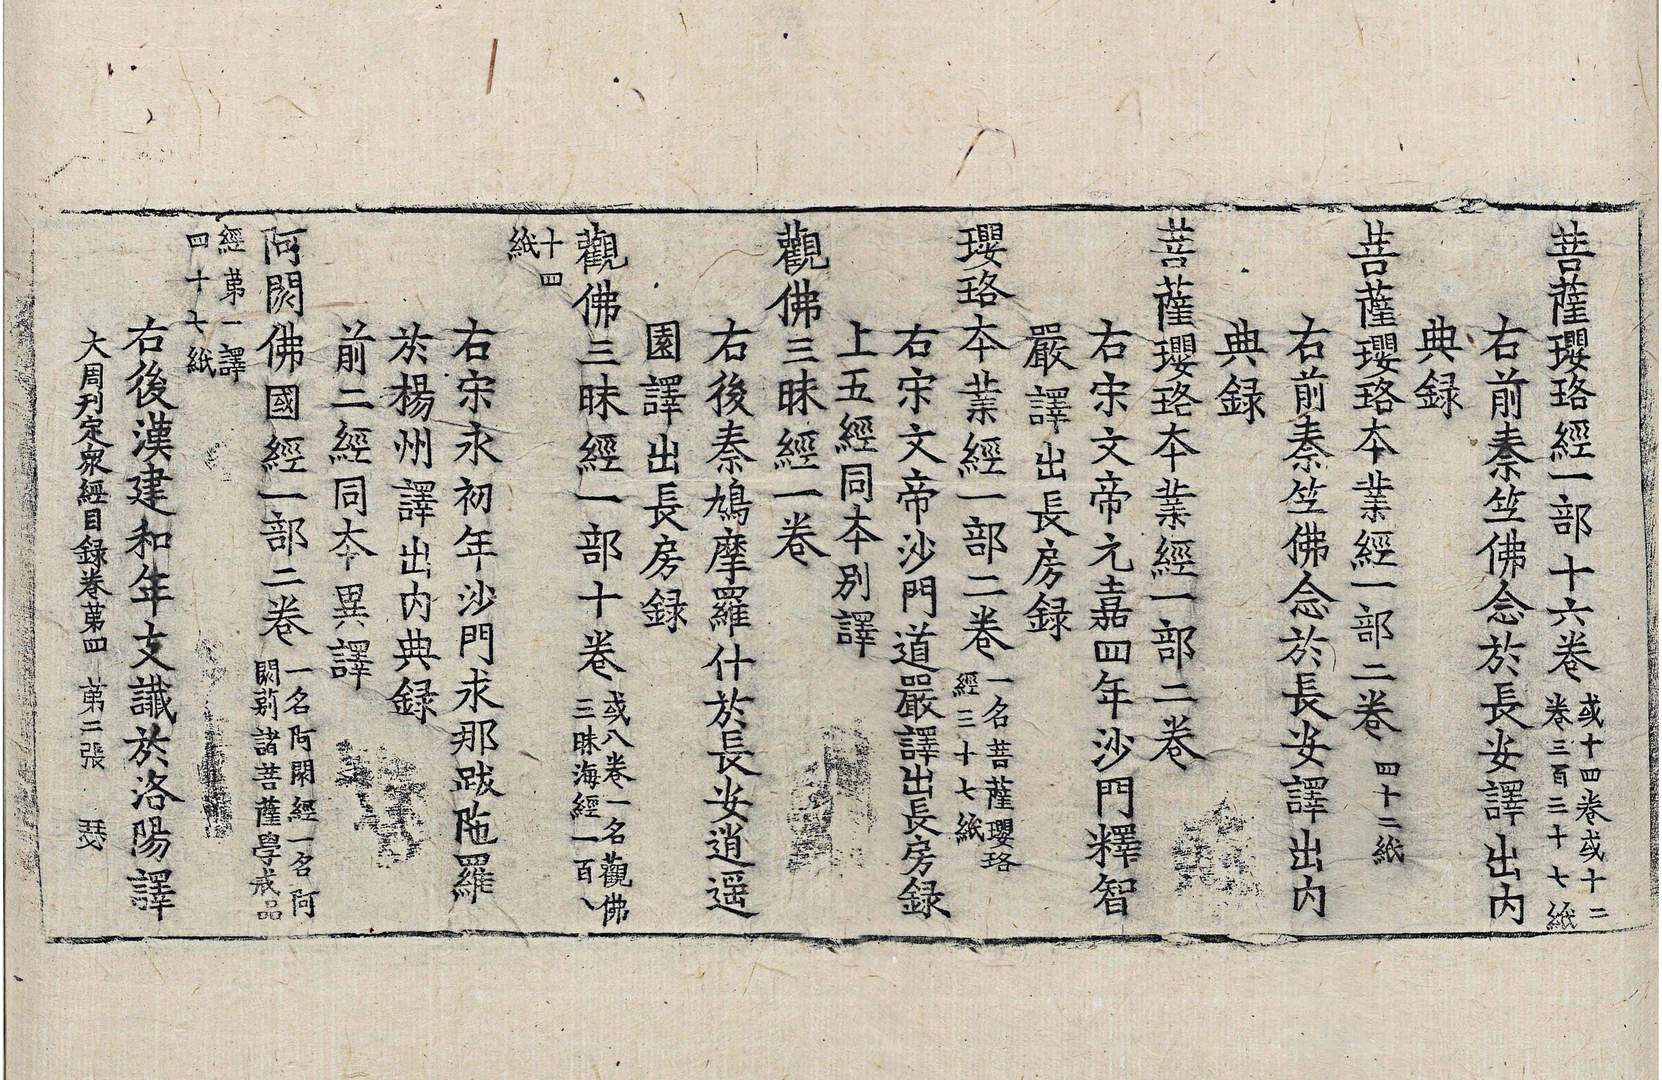 菩薩瓔珞經一部十六卷 或十四卷或十二
卷三百三十七紙
右前秦竺佛念於長安譯出內
典録
菩薩瓔珞本業經一部二卷 四十二紙
右前秦竺佛念於長安譯出內
典録
菩薩瓔珞本業經一部二卷
右宋文帝元嘉四年沙門釋智
嚴譯出長房録
瓔珞本業經一部二卷 一名菩薩瓔珞
經三十七紙
右宋文帝沙門道嚴譯出長房録
上五經同本別譯
觀佛三昧經一卷
右後秦鳩摩羅什於長安逍遥
園譯出長房録
觀佛三昧經一部十卷 或八卷一名觀佛
三昧海經一百八
十四
紙
右宋永初年沙門求那跋陁羅
於楊州譯出內典録
前二經同本異譯
阿閦佛國經一部二卷 一名阿閦經一名阿
閦剎諸菩薩學戒品
經苐一譯
四十七紙
右後漢建和年支讖於洛陽譯
大周刊定衆經目録卷苐四 苐二張 瑟